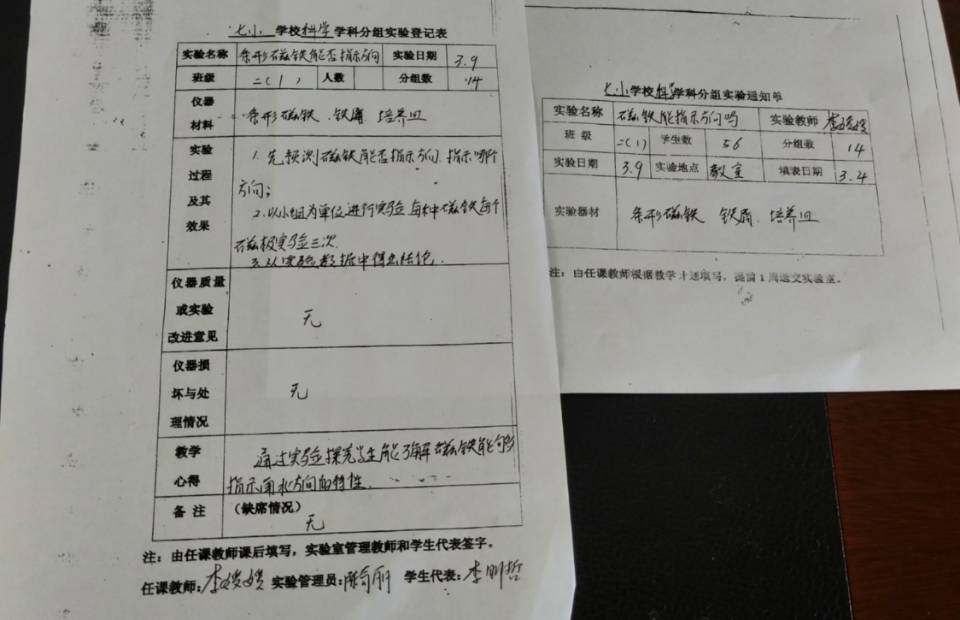 七小 学校科学学科分组实验登记表
实验名称 条形磁铁能否指示方向 实验日期 3.9
班级 二(1) 人数 分组数 14
仪器材料 条形磁铁 铁屑 培养皿
实验过程及其效果 1. 先预测磁铁能否指示方向,指示哪个
方向;
2. 以小组为单位进行实验 每块磁铁每个
磁极实验三次.
3. 从实验数据中得出结论.
仪器质量或实验改进意见 无
仪器损坏与处理情况 无
教学心得 通过实验探究学生能了解磁铁能够
指示南北方向的特性.
备注 (缺席情况)
无
注:由任课教师课后填写,实验室管理教师和学生代表签字。
任课教师: 实验管理员: 学生代表:李明哲
七小学校科学学科分组实验通知单
实验名称 磁铁能指示方向吗 实验教师
班级 二(1) 学生数 56 分组数 14
实验日期 3.9 实验地点 教室 填表日期 3.4
实验器材 条形磁铁 铁屑 培养皿
注:由任课教师根据教学计述填写,提前1周送交实验室。